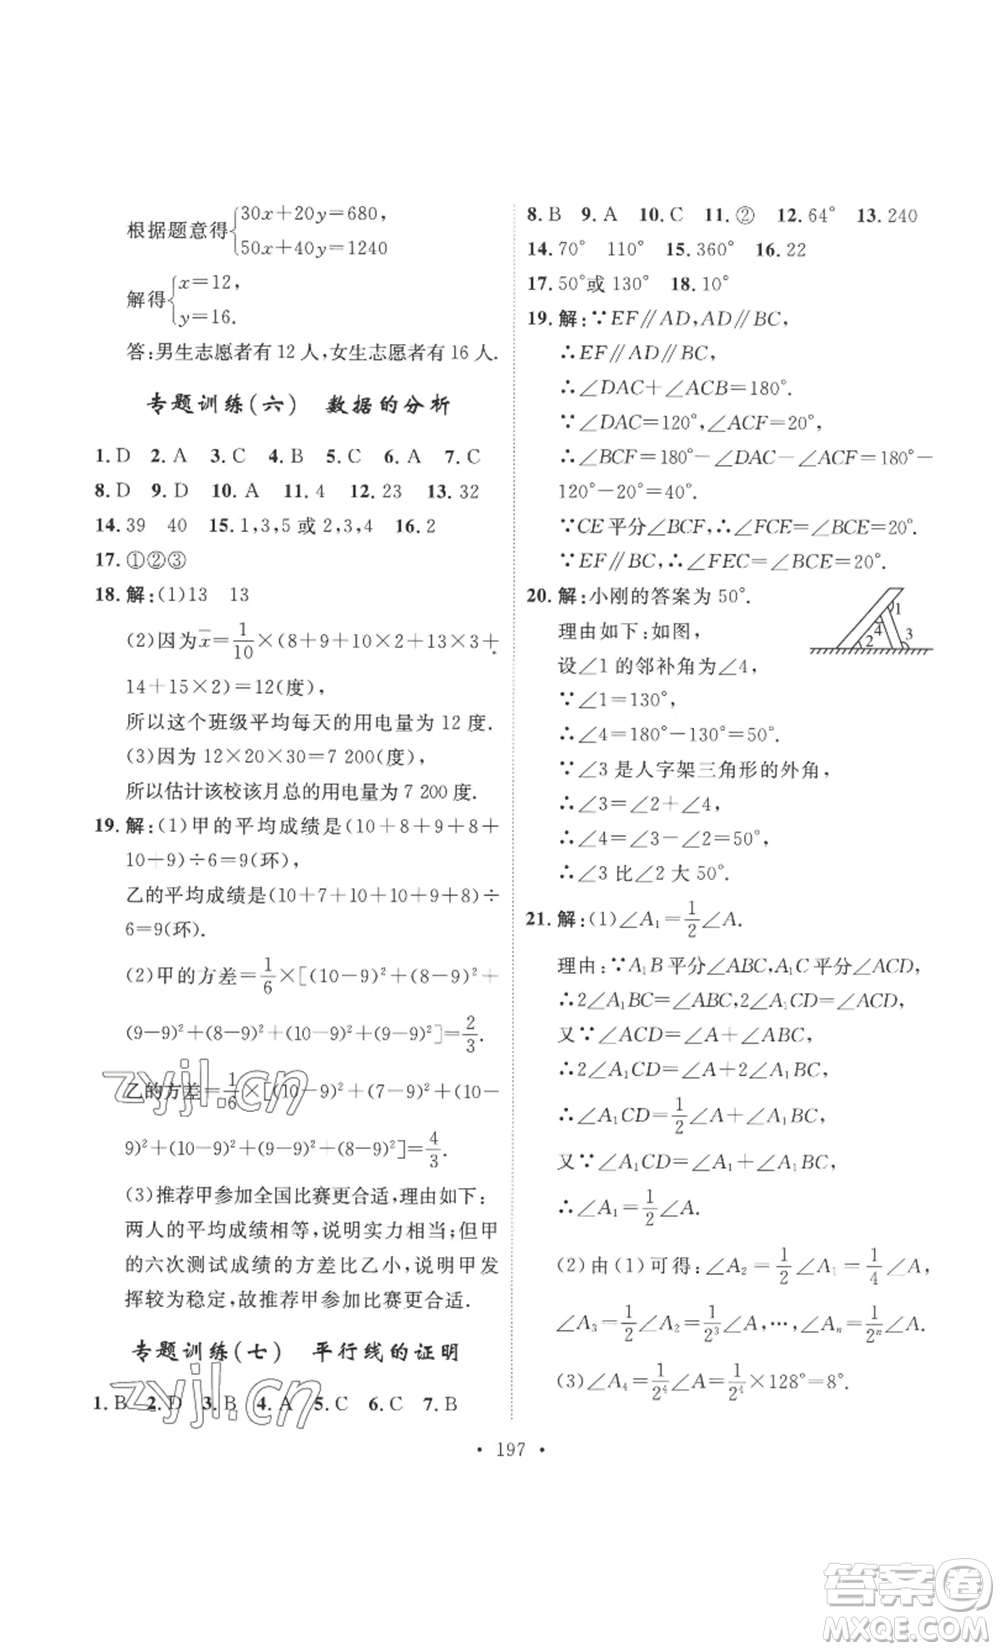 根据题意得{30x+20y=680,
50x+40y=1240
解得{x=12,
y=16.
答:男生志愿者有 12 人,女生志愿者有 16 人.
专题训练(六) 数据的分析
1. D 2. A 3. C 4. B 5. C 6. A 7. C
8. D 9. D 10. A 11. 4 12. 23 13. 32
14. 39 40 15. 1,3,5 或 2,3,4 16. 2
17. ①②③
18. 解:(1)13 13
(2)因为x̄=1/10×(8+9+10×2+13×3+
14+15×2)=12(度),
所以这个班级平均每天的用电量为 12 度.
(3)因为 12×20×30=7 200(度),
所以估计该校该月总的用电量为 7 200 度.
19. 解:(1)甲的平均成绩是(10+8+9+8+
10+9)÷6=9(环),
乙的平均成绩是(10+7+10+10+9+8)÷
6=9(环).
(2)甲的方差=1/6×[(10-9)²+(8-9)²+
(9-9)²+(8-9)²+(10-9)²+(9-9)²]=2/3.
乙的方差=1/6×[(10-9)²+(7-9)²+(10-
9)²+(10-9)²+(9-9)²+(8-9)²]=4/3.
(3)推荐甲参加全国比赛更合适,理由如下:
两人的平均成绩相等,说明实力相当;但甲
的六次测试成绩的方差比乙小,说明甲发
挥较为稳定,故推荐甲参加比赛更合适.
专题训练(七) 平行线的证明
1. B 2. D 3. B 4. A 5. C 6. C 7. B
8. B 9. A 10. C 11. ② 12. 64° 13. 240
14. 70° 110° 15. 360° 16. 22
17. 50°或 130° 18. 10°
19. 解:∵EF∥AD,AD∥BC,
∴EF∥AD∥BC,
∴∠DAC+∠ACB=180°.
∵∠DAC=120°,∠ACF=20°,
∴∠BCF=180°-∠DAC-∠ACF=180°-
120°-20°=40°.
∵CE平分∠BCF,∴∠FCE=∠BCE=20°.
∵EF∥BC,∴∠FEC=∠BCE=20°.
20. 解:小刚的答案为 50°.
理由如下:如图,
设∠1 的邻补角为∠4,
∵∠1=130°,
∴∠4=180°-130°=50°.
∵∠3 是人字架三角形的外角,
∴∠3=∠2+∠4,
∴∠4=∠3-∠2=50°,
∴∠3 比∠2 大 50°.
1
4
2
3
21. 解:(1)∠A₁=1/2∠A.
理由:∵A₁B平分∠ABC,A₁C平分∠ACD,
∴2∠A₁BC=∠ABC,2∠A₁CD=∠ACD,
又∵∠ACD=∠A+∠ABC,
∴2∠A₁CD=∠A+2∠A₁BC,
∴∠A₁CD=1/2∠A+∠A₁BC,
又∵∠A₁CD=∠A₁+∠A₁BC,
∴∠A₁=1/2∠A.
(2)由(1)可得:∠A₂=1/2∠A₁=1/4∠A,
∠A₃=1/2∠A₂=1/2³∠A,…,∠Aₙ=1/2ⁿ∠A.
(3)∠A₄=1/2⁴∠A=1/2⁴×128°=8°.
• 197 •
zyjl.cn
zyjl.cn
答案圈
MXQE.COM